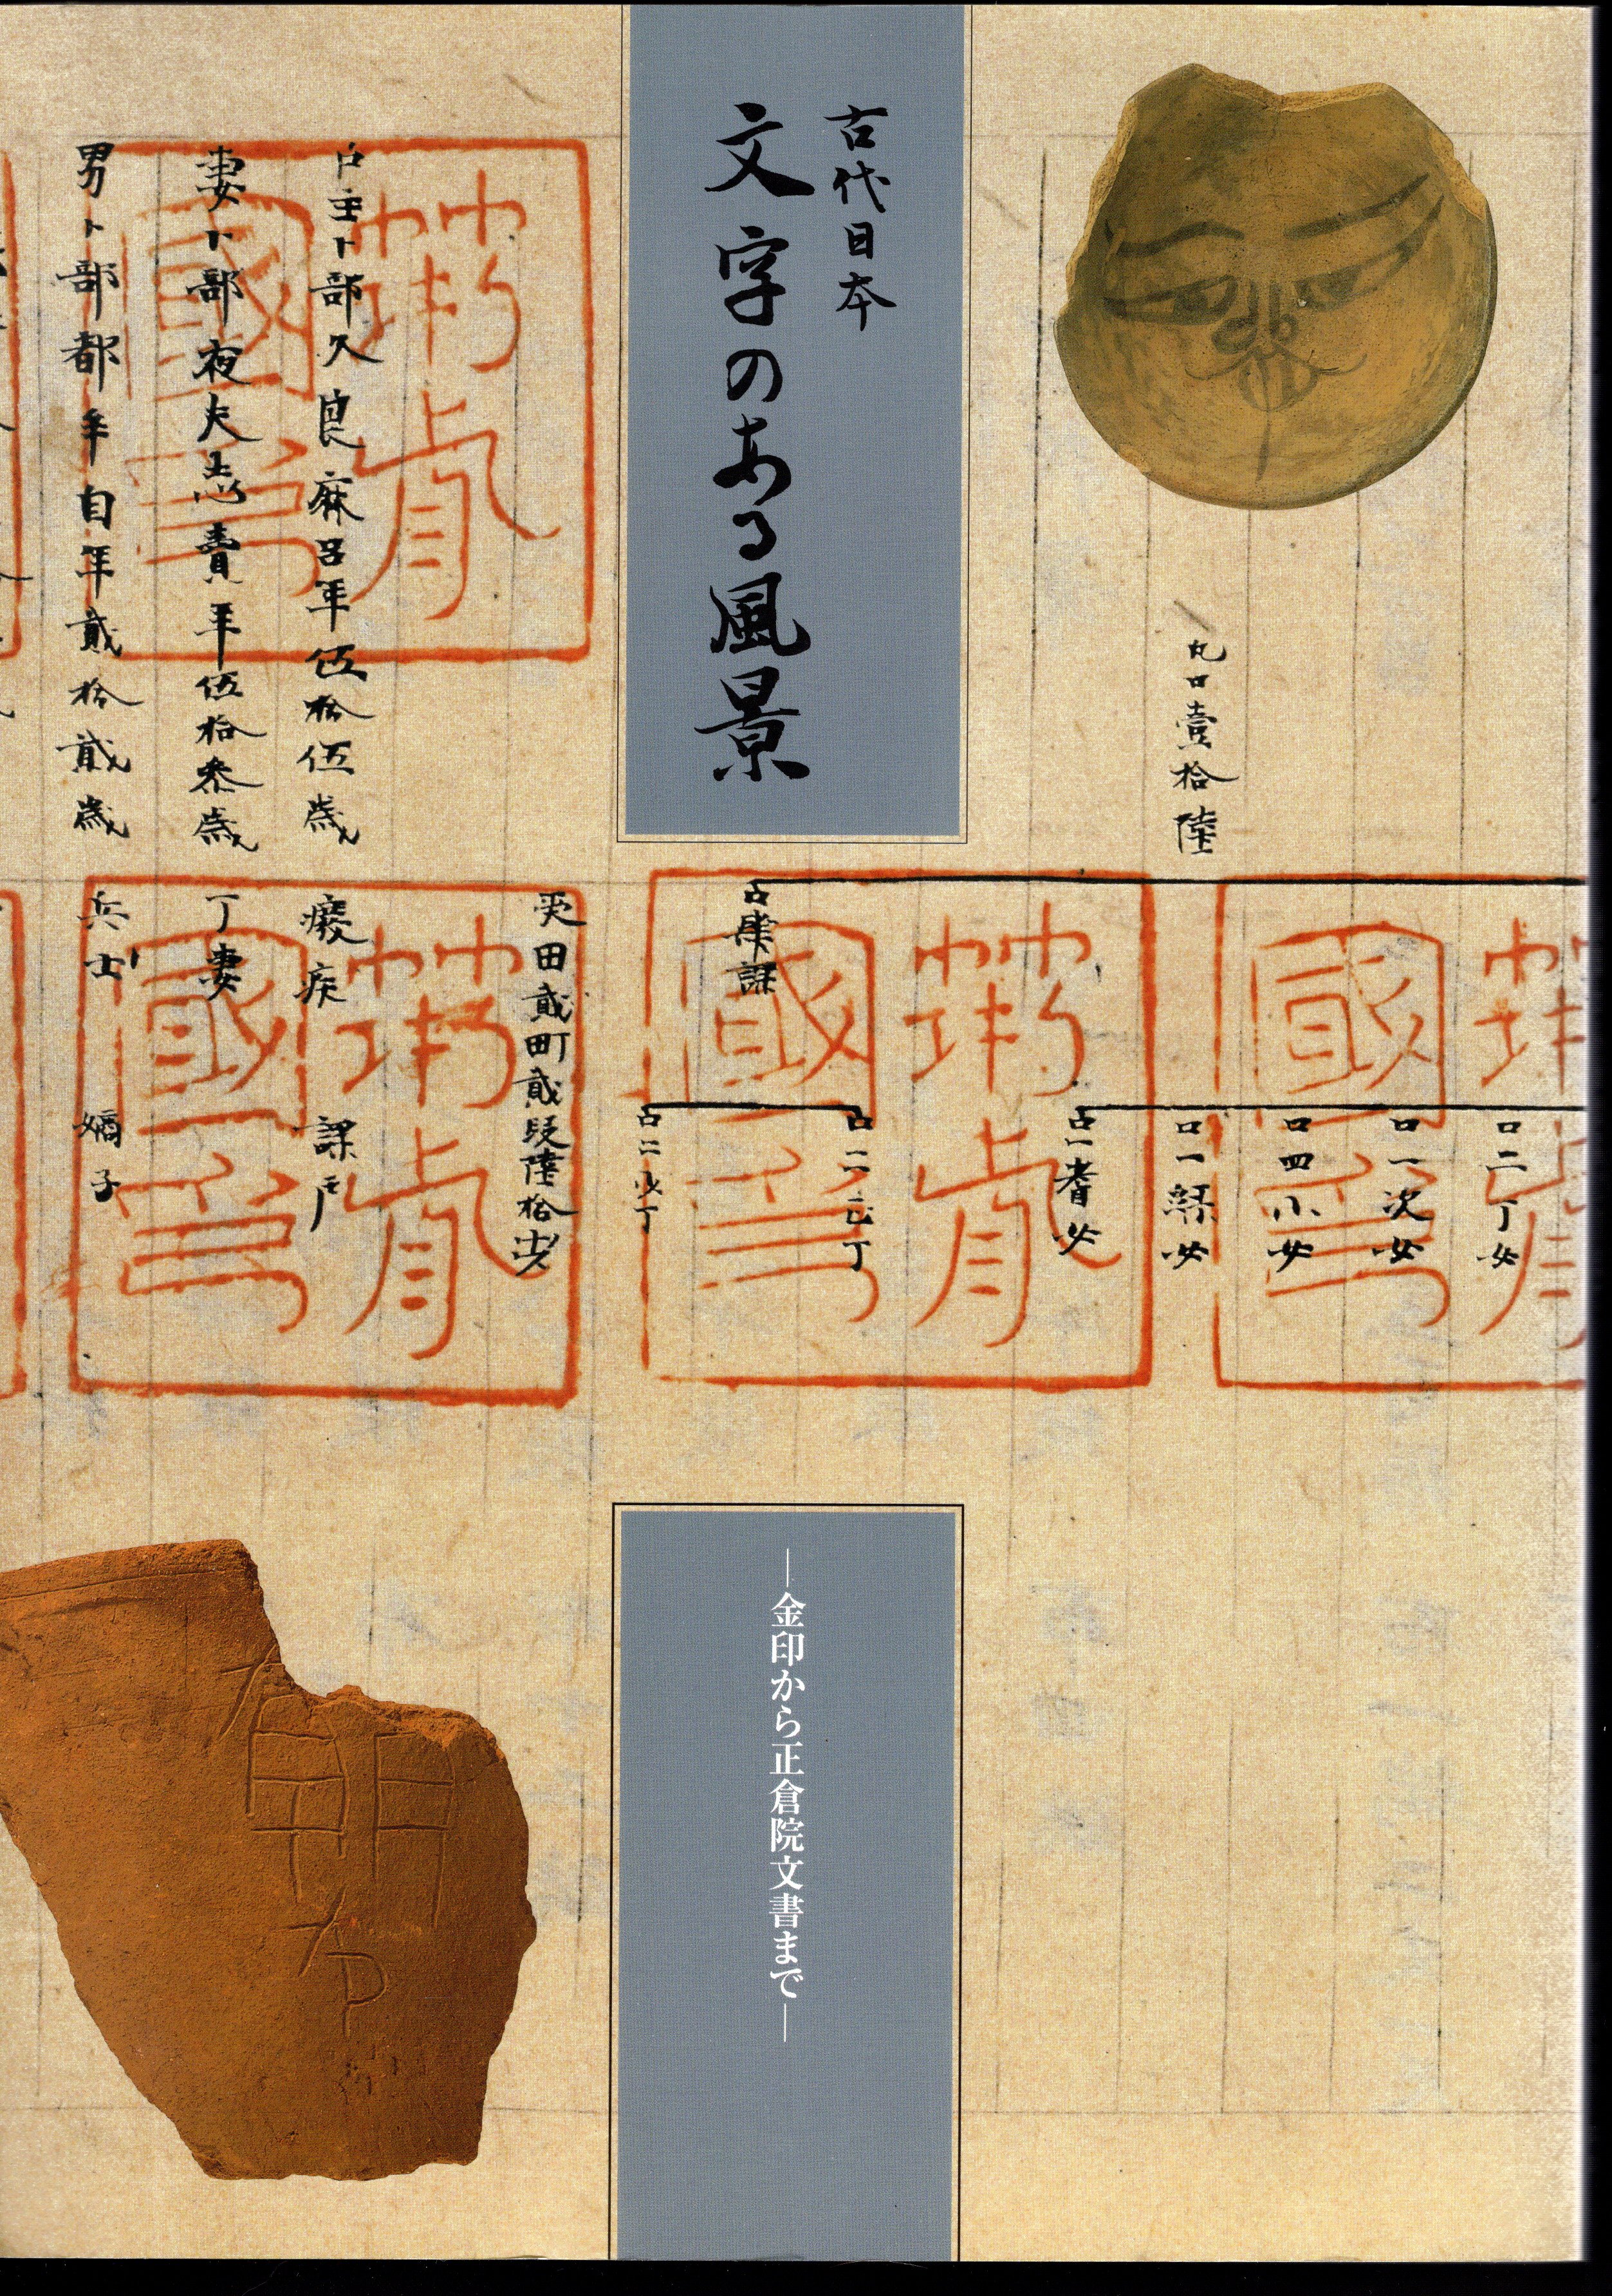 古代日本
文字のある風景
―金印から正倉院文書まで―
凡口壹拾陸
口二丁女
口一次女
口四小女
口一緑女
口一耆女
口二正丁
口二少丁
受田貳町貳段陸拾歩
戸主卜部久良麻呂年伍拾伍歳 癈疾 課戸
妻卜部夜夫志賣年伍拾参歳 丁妻
男卜部都牟自年貳拾貳歳 兵士 嫡子